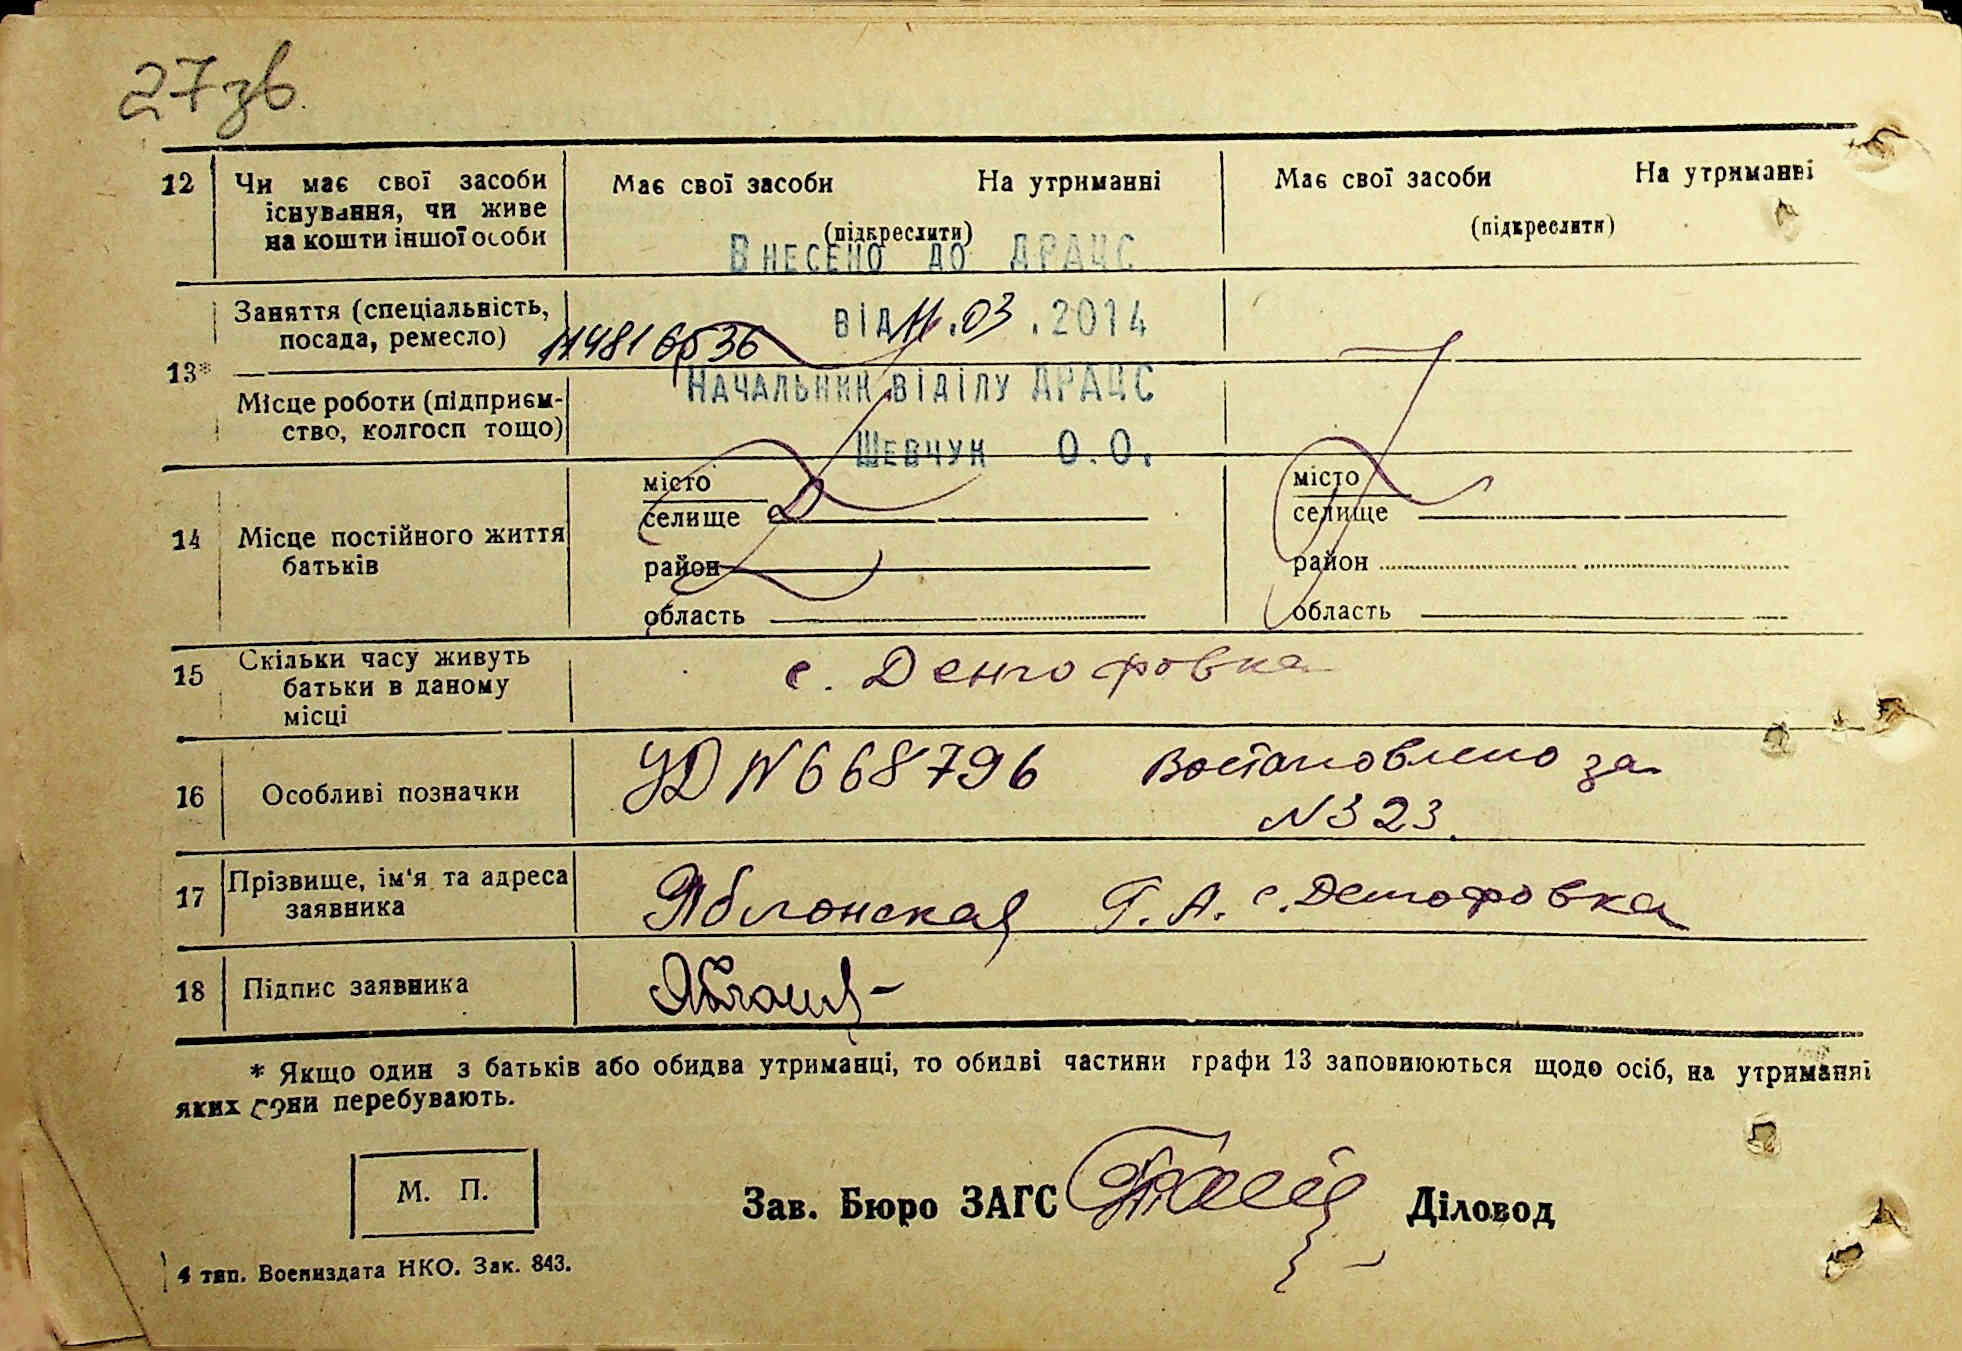 27 зв
12 Чи має свої засоби Має свої засоби На утриманні Має свої засоби На утриманні
існування, чи живе (підкреслити) (підкреслити)
на кошти іншої особи
Внесено до ДРАЦС
Заняття (спеціальність, від 11.03.2014
посада, ремесло)
13*
Місце роботи (підприєм- Начальник відділу ДРАЦС
ство, колгосп тощо)
Шевчук О.О.
місто місто
селище с селище
14 Місце постійного життя
батьків район район
область область
15 Скільки часу живуть с.
батьки в даному
місці
УД N 668796 Востановлено за
16 Особливі позначки N 323.
17 Прізвище, ім'я та адреса Яблонская Г. А. с.
заявника
18 Підпис заявника
* Якщо один з батьків або обидва утриманці, то обидві частини графи 13 заповнюються щодо осіб, на утриманні
яких вони перебувають.
М. П.
Зав. Бюро ЗАГС Діловод
4 тип. Воениздата НКО. Зак. 843.